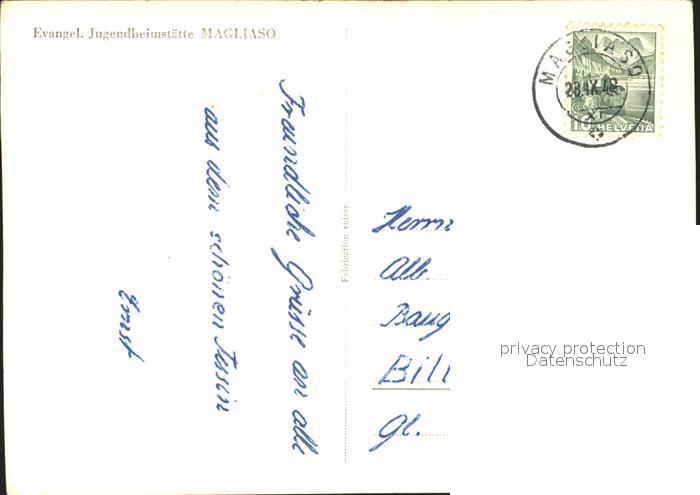 Evangel. Jugendheimstätte MAGLIASO
Freundliche Grüsse an alle
aus dem schönen Tessin
Ernst
Fabrication suisse
MAGLIASO
28.IX.48
XI
10 HELVETIA
Herrn
Alb.
Baug
Bill
Gl.
privacy protection
Datenschutz